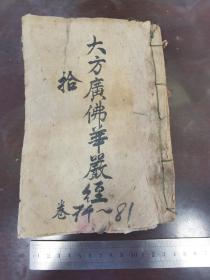 大方廣佛華嚴經
拾
卷74~81